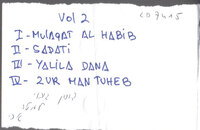 Vol 2
CO7415
I - MULAQAT AL HABIB
II - SADATI
III - YALILA DANA
IV - ZUR MAN TUHEB